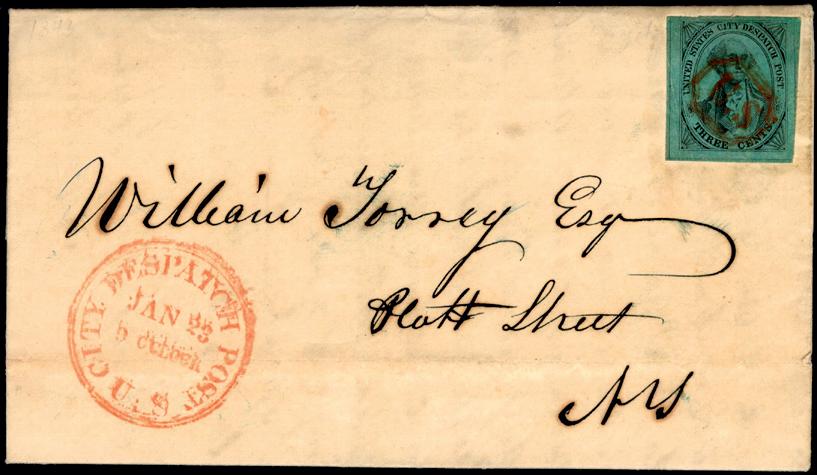 UNITED STATES CITY DESPATCH POST.
THREE CENTS.
U.S
William Torrey Esq
Platt Street
NY
U.S CITY DESPATCH POST
JAN 25
5 o'Clock